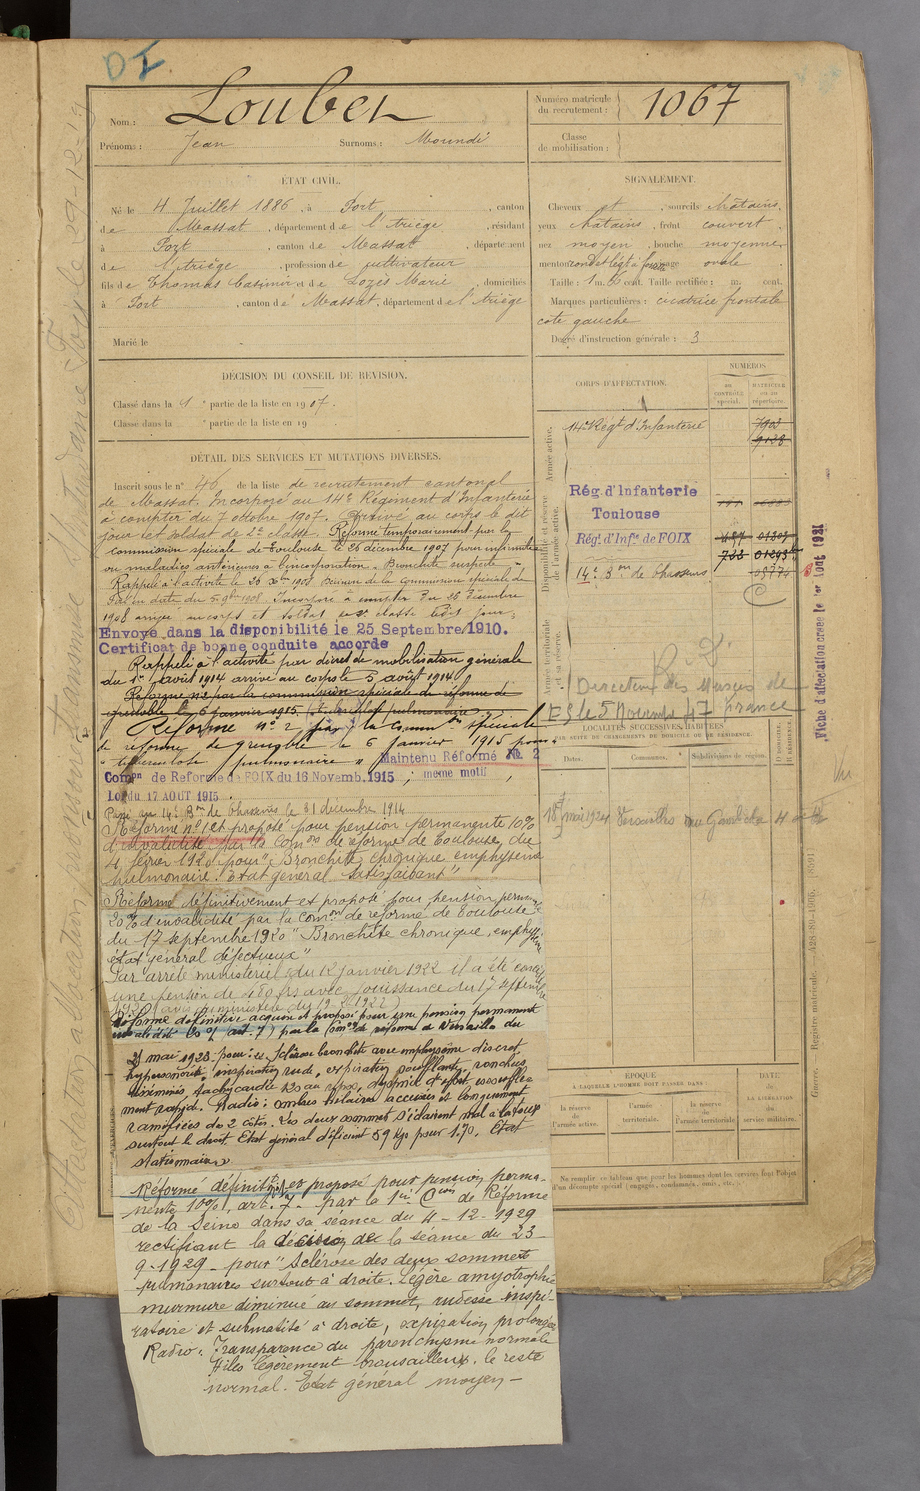 DI
Nom : Louber
Prénoms : Jean Surnoms :
Numéro matricule du recrutement : 1067
Classe de mobilisation :
ÉTAT CIVIL.
Né le 4 Juillet 1886, à Port, canton
de Massat, département de l'Ariège, résidant
à Port, canton de Massat, département
de l'Ariège, profession de cultivateur
fils de Thomas Casimir et de Marie, domiciliés
à Port, canton de Massat, département de l'Ariège
Marié le
SIGNALEMENT.
Cheveux et, sourcils châtains,
yeux châtains, front couvert
nez moyen, bouche moyenne,
menton visage ovale
Taille : 1 m. cent. Taille rectifiée : m. cent.
Marques particulières : cicatrice frontale
côté gauche
Degré d'instruction générale : 3
DÉCISION DU CONSEIL DE REVISION.
Classé dans la 1e partie de la liste en 1907.
Classé dans la e partie de la liste en 19
CORPS D'AFFECTATION.
NUMÉROS
AU CONTRÔLE spécial.
MATRICULE OU AU répertoire.
Armée active.
14e Régt d'Infanterie
Disponibilité et réserve de l'armée active.
Rég. d'Infanterie
Toulouse
Régt d'Infie de FOIX
14e Bon de Chasseurs
Armée territoriale et sa réserve.
Directeur des Musées de France
DÉTAIL DES SERVICES ET MUTATIONS DIVERSES.
Inscrit sous le n° 46 de la liste de recrutement cantonal
de Massat. Incorporé au 14e Régiment d'Infanterie
à compter du 7 octobre 1907. Arrivé au corps le dit
jour et soldat de 2e classe. Réformé temporairement par la
commission spéciale de Toulouse le 26 décembre 1907 pour infirmités
ou maladies antérieures à l'incorporation « Bronchite suspecte »
Rappelé à l'activité le 26 Xbre 1908 de la Commission spéciale de
Incorporé à compter du 26 décembre
1908 arrivé au corps et soldat de 2e classe ledit jour.
Envoyé dans la disponibilité le 25 Septembre 1910.
Certificat de bonne conduite accordé
Rappelé à l'activité par décret de mobilisation générale
du 1er août 1914 arrivé au corps le 5 août 1914
Réformé n° 2 par la commission spéciale de réforme de
grenoble le 6 janvier 1915
Réformé n° 2 par la common spéciale
de réforme de grenoble le 6 janvier 1915 pour
« tuberculose pulmonaire » Maintenu Réformé № 2
Compn de Réforme de FOIX du 16 Novemb. 1915 ; même motif ;
Loi du 17 AOUT 1915
Passé au 14e Bon de Chasseurs le 31 décembre 1914
Réformé n° 1 et proposé pour pension permanente 10%
d'invalidité par la Comon de réforme de Toulouse du
4 février 1920 pour « Bronchite chronique emphysème
pulmonaire. Etat général satisfaisant »
Réformé définitivement et proposé pour pension perm.
20% d'invalidité par la comon de réforme de Toulouse
du 17 septembre 1920 « Bronchite chronique, emphysème
état général défectueux »
Par arrêté ministériel du 12 janvier 1922 il a été concédé
une pension de 480 frs avec jouissance du 17 septembre
Réforme définitive acquise et proposé pour une pension permanent
par la comon de réforme de Versailles du
21 mai 1928 pour : Sclérose bronchite avec emphysème discret
hypersonorité, inspiration rude, expiration soufflante, ronchus
disséminés, tachycardie 120 au repos, dyspnée d'effort, essouffle-
ment rapide. Radio : ombres hilaires accrues et longuement
ramifiées des 2 côtés. Les deux sommets s'éclairent mal à la toux
surtout le droit. Etat général déficient 59 kgs pour 1.70. Etat
stationnaire
Réformé définitif et proposé pour pension perma-
nente 10%, art. 7. par la 1ère Cion de Réforme
de la Seine dans sa séance du 4-12-1929
rectifiant la décision de la séance du 23-
9-1929 - pour « Sclérose des deux sommets
pulmonaires surtout à droite. Légère amyotrophie
murmure diminué au sommet, rudesse inspi-
ratoire et submatité à droite, expiration prolongée
Radio : Transparence du parenchyme normale
Hiles légèrement broussailleux, le reste
normal. Etat général moyen -
LOCALITÉS SUCCESSIVES HABITÉES
PAR SUITE DE CHANGEMENTS DE DOMICILE OU DE RÉSIDENCE.
Dates. Communes. Subdivisions de région. D. DOMICILE. R. RÉSIDENCE.
18 mai 1924 Versailles rue Gambetta 4
ÉPOQUE
À LAQUELLE L'HOMME DOIT PASSER DANS :
la réserve de l'armée active.
l'armée territoriale.
la réserve de l'armée territoriale
DATE de LA LIBÉRATION du service militaire.
Ne remplir ce tableau que pour les hommes dont les services font l'objet
d'un décompte spécial (engagés, condamnés, omis, etc.).
Fiche d'affectation créée le 1er Aout 1921
Guerre. Registre matricule.